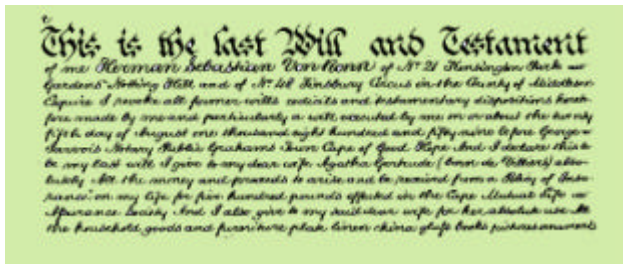 This is the last Will and Testament
of me Herman Sebastian Von Ronn of No. 21 Kensington Park
Gardens Notting Hill and of No. 48 Finsbury Circus in the County of Middlesex
Esquire I revoke all former wills codicils and testamentary dispositions heretofore
fore made by me and particularly a will executed by me on or about the twenty
fifth day of August one thousand eight hundred and fifty nine before George
Notary Public Grahams Town Cape of Good Hope And I declare this to
be my last will I give to my dear wife Agatha Gertrude (born de Villiers) abso-
lutely All the money and proceeds to arise and be received from a Policy of Insu-
rance on my life for five hundred pounds effected in the Cape Mutual Life
Assurance Society And I also give to my said dear wife for her absolute use All
the household goods and furniture plate linen china glass books pictures ornaments